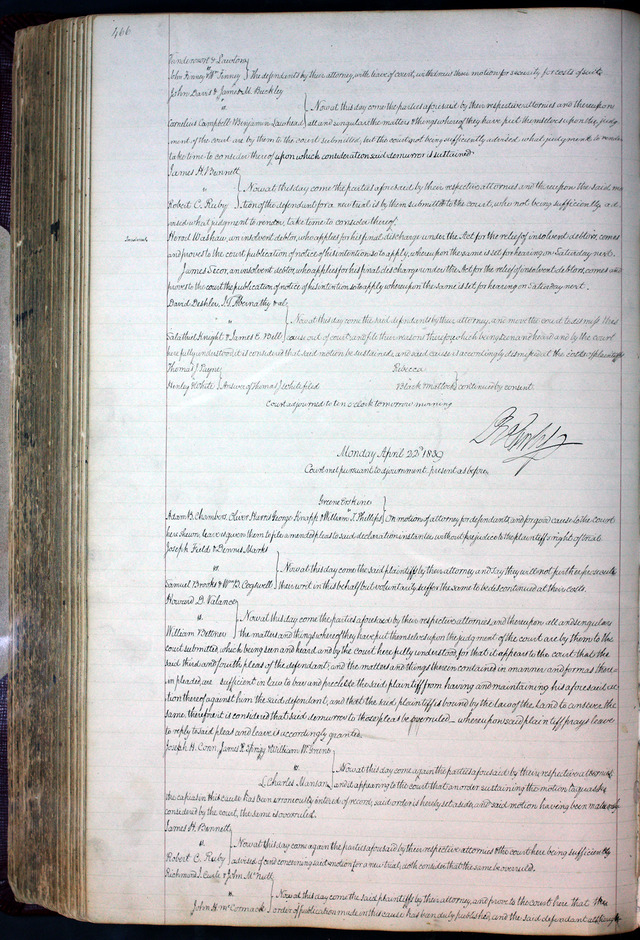 466
Vanderowrt & Lawtony
vs
John Finney & Wm Finney } The defendants by their attorney, with leave of court, withdraws their motion for security for costs of suit.
John Davis & James M. Buckley
vs
{ Now at this day come the parties aforesaid by their respective attornies and thereupon
Cornelius Campbell & Benjamin Lawhead all and singular the matters & things whereof they have put themselves upon the judg-
ment of the court are by them to the court submitted, but the court not being sufficiently advised, what judgment to render
take time to consider thereof upon which consideration said demurror is sustained
James H. Bennett
vs
{ Now at this day come the parties aforesaid by their respective attornies and thereupon the said mo
Robert C. Ruby tion of the defendant for a new trial is by them submitted to the court, who not being sufficiently ad-
vised what judgment to render, take time to consider thereof.
Insolvent. Herod Washaw, an insolvent debtor, who applies for his final discharge under the Act for the relief of insolvent debtors, comes
and proves to the court publication of notice of his intention so to apply, whereupon the same is set for hearing on Saturday next.
James Secor, an insolvent debtor, who applies for his final discharge under the Act for the relief of insolvent debtors, comes and
proves to the court the publication of notice of his intention so to apply whereupon the same is set for hearing on Saturday next.
David Deshler, J.T. Abernathy & al,
vs
{ Now at this day come the said defendants by their attorney, and move the court to dismiss this
Salathiel Knight & James E. Bell cause out of court and file their reasons therefor, which being seen and heard and by the court
here fully understood, it is considered that said motion be sustained, and said cause is accordingly dismissed at the costs of plaintiffs
Thomas J Payne Rebecca
vs
Henley & White } Answer of Thomas J White filed Black Matlock } continued by consent.
Court adjourned to ten o'clock tomorrow morning
Monday April 22d 1839
Court met pursuant to adjournment, present as before
Greene Erskine
vs
Adam B. Chambers, Oliver Harris George Knapp & William T. Phillips } On motion of attorney for defendants, and for good cause to the court
here shewn, leave is given them to file amended pleas to said declaration instanter, without prejudice to the plaintiff's right of trial
Joseph Field & Dennis Marks
vs
{ Now at this day come the said plaintiffs by their attorney and say they will not further prosecute
Samuel Brooks & Wm B. Cogswell their writ in this behalf but voluntarily suffer the same to be discontinued at their costs.
Howard D. Valance
vs
{ Now at this day come the parties aforesaid by their respective attornies, and thereupon all and singular
William Dettmer the matters and things whereof they have put themselves upon the judgment of the court are by them to the
court submitted, which being seen and heard, and by the court here fully understood for that it appears to the court that the
said third and fourth pleas of the defendant, and the matters and things therein contained in manner and form as there-
in pleaded are sufficient in law to bar and preclude the said plaintiff from having and maintaining his aforesaid ac-
tion thereof against him the said defendant, and that the said plaintiff is bound by the law of the land to answer the
same, therefore it is considered that said demurror to those pleas be overruled — whereupon said plaintiff prays leave
to reply to said pleas and leave is accordingly granted.
Joseph H. Conn, James P. Spragg & William W. Greene
vs
{ Now at this day come again the parties aforesaid by their respective attornies
L. Charles Manson and it appearing to the court that an order sustaining the motion to quash
the capias in this cause has been erroneously entered of record, said order is hereby set aside, and said motion having been maturely
considered by the court, the same is overruled.
James H. Bennett
vs
{ Now at this day come again the parties aforesaid by their respective attornies & the court here being sufficiently
Robert C. Ruby advised of and concerning said motion for a new trial, doth consider that the same be overruled.
Richmond J. Curle & John McNull
vs
{ Now at this day come the said plaintiffs by their attorney, and prove to the court here that the
John H. McCormack order of publication made in this cause has been duly published, and the said defendant although